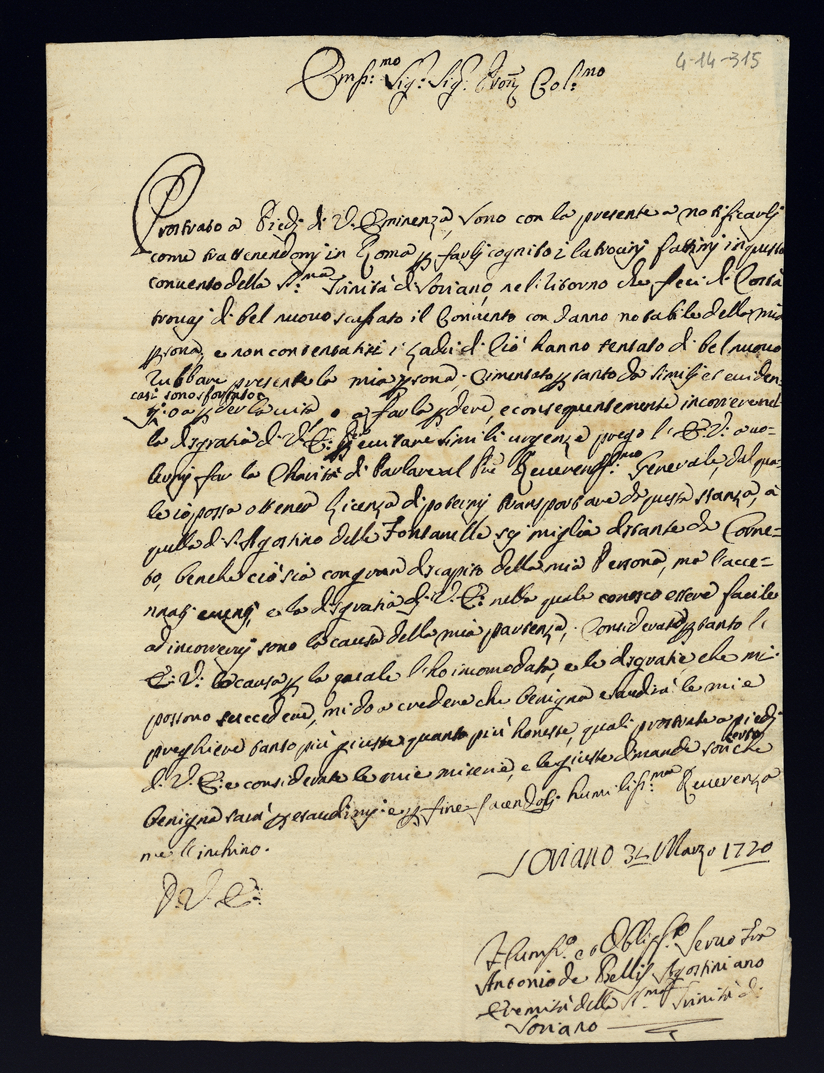 4-14-315
Em:mo Sig: Sig: Pron Col:mo
Prostrato a Piedi di V. Eminenza, sono con la presente a notificarli
come trattenendomj in Roma p farlj cognito i latrocinj fattimj in questo
convento della S:ma Trinità di Soriano, nel ritorno che feci di Costà
trovaj di bel nuovo scassato il Convento con danno notabile della mia
psona, e non contentatisi i Ladri di ciò hanno tentato di bel nuovo
rubbare presente la mia psona. Cimentato p tanto da similj et eviden
casi sono sforzato
tj o a pder la vita, o a farla pdere, e conseguentemente incorrere nel
la disgratia di V. E: p evitare simili urgenze prego l'E: V: a vo=
lermj far la Charità di Parlare al Pre Reverendiss:mo Generale, dal qua=
le io possa ottener Licenza di potermj transportare da questa stanza, à
quella di S. Agostino delle Fontanelle sej miglia distante da Corne=
to, benche ciò sia con gran discapito della mia Persona, ma l'acce=
nnatj eventj, e la disgratia di V. E: nella quale conosco essere facile
ad incorrermj sono la causa della mia partenza. Considerata p tanto l'
E: V: la causa p la quale l'ho incomodata, e le disgratie che mi
possono succedere, mi do a credere che benigna esaudirà le mie
preghiere tanto più giuste quanto più honeste, quali prostrate a piedj
di V. E: e considerate le mie miserie, e le giuste dimande son certo che
benigna sarà p esaudirmj e p fine facendoli humilissi:ma Reverenza
me l'inchino.
Soriano 31 Marzo 1720
D. V. E:
Humiss:o e Obbligss:o Servo Fra
Antonio de Bellis Agostiniano
Eremita della S:ma Trinità di
Soriano